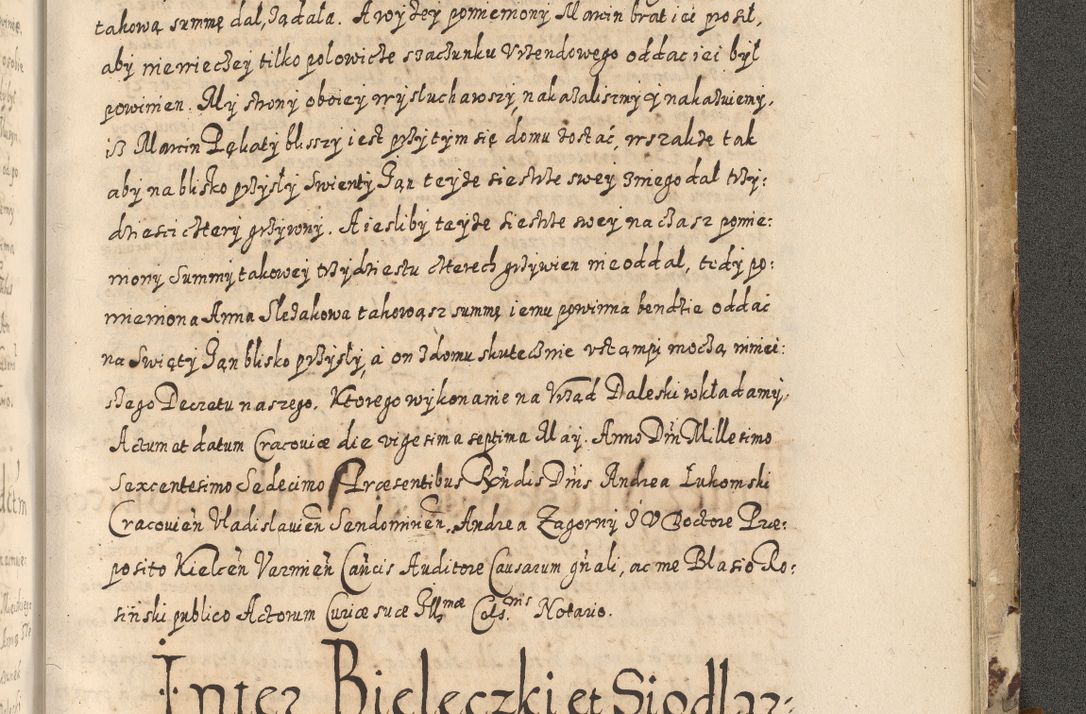 takową summę dał, żądała. A wyżey pomieniony Marcin brat iei prosił,
aby niewięczey tilko polowicze szaczunku Vrzendowego oddac iei był
powinien. My strony oboiey wysłuchawszy, nakazalismy y nakazuiemy,
iż Marcin Pękaty blisszy iest przy tym się domu zostać, wszakże tak
aby na blisko przyszły Swienty Jan teyże siestrze swey z niego dał trzy:
dziesci cztery grzywny. A iesliby teyże siestrze swey na czasz pomie:
niony Summy takowey trzydziestu czterech grzywien nie oddał, tedy po:
mieniona Anna Slezakowa takowąsz summę iemu powinna bendzie oddać
na Swięty Jan blisko przyszły, a on z domu skutecznie vstąmpi moczą niniei:
szego Decretu naszego. Ktorego wykonanie na Vrząd Daleski wkładamy,
Actum et datum Cracoviæ die vigesima septima May. Anno Dn̄i Millesimo
Sexcentesimo Sedecimo Præsentibus Rn̄dis Dn̄is Andrea Łukomski
Cracovien̄ Vladislavien̄ Sendomirien̄. Andrea Zagorny I V Doctore Præ:
posito Kielcen̄ Varmien̄ Can̄cis Auditore Causarum gn̄ali, ac me Blasio Ro:
siński publico Actorum Curiæ suæ Illmæ Cels.nis Notario.
Inter Bieleczki et Siodlar: